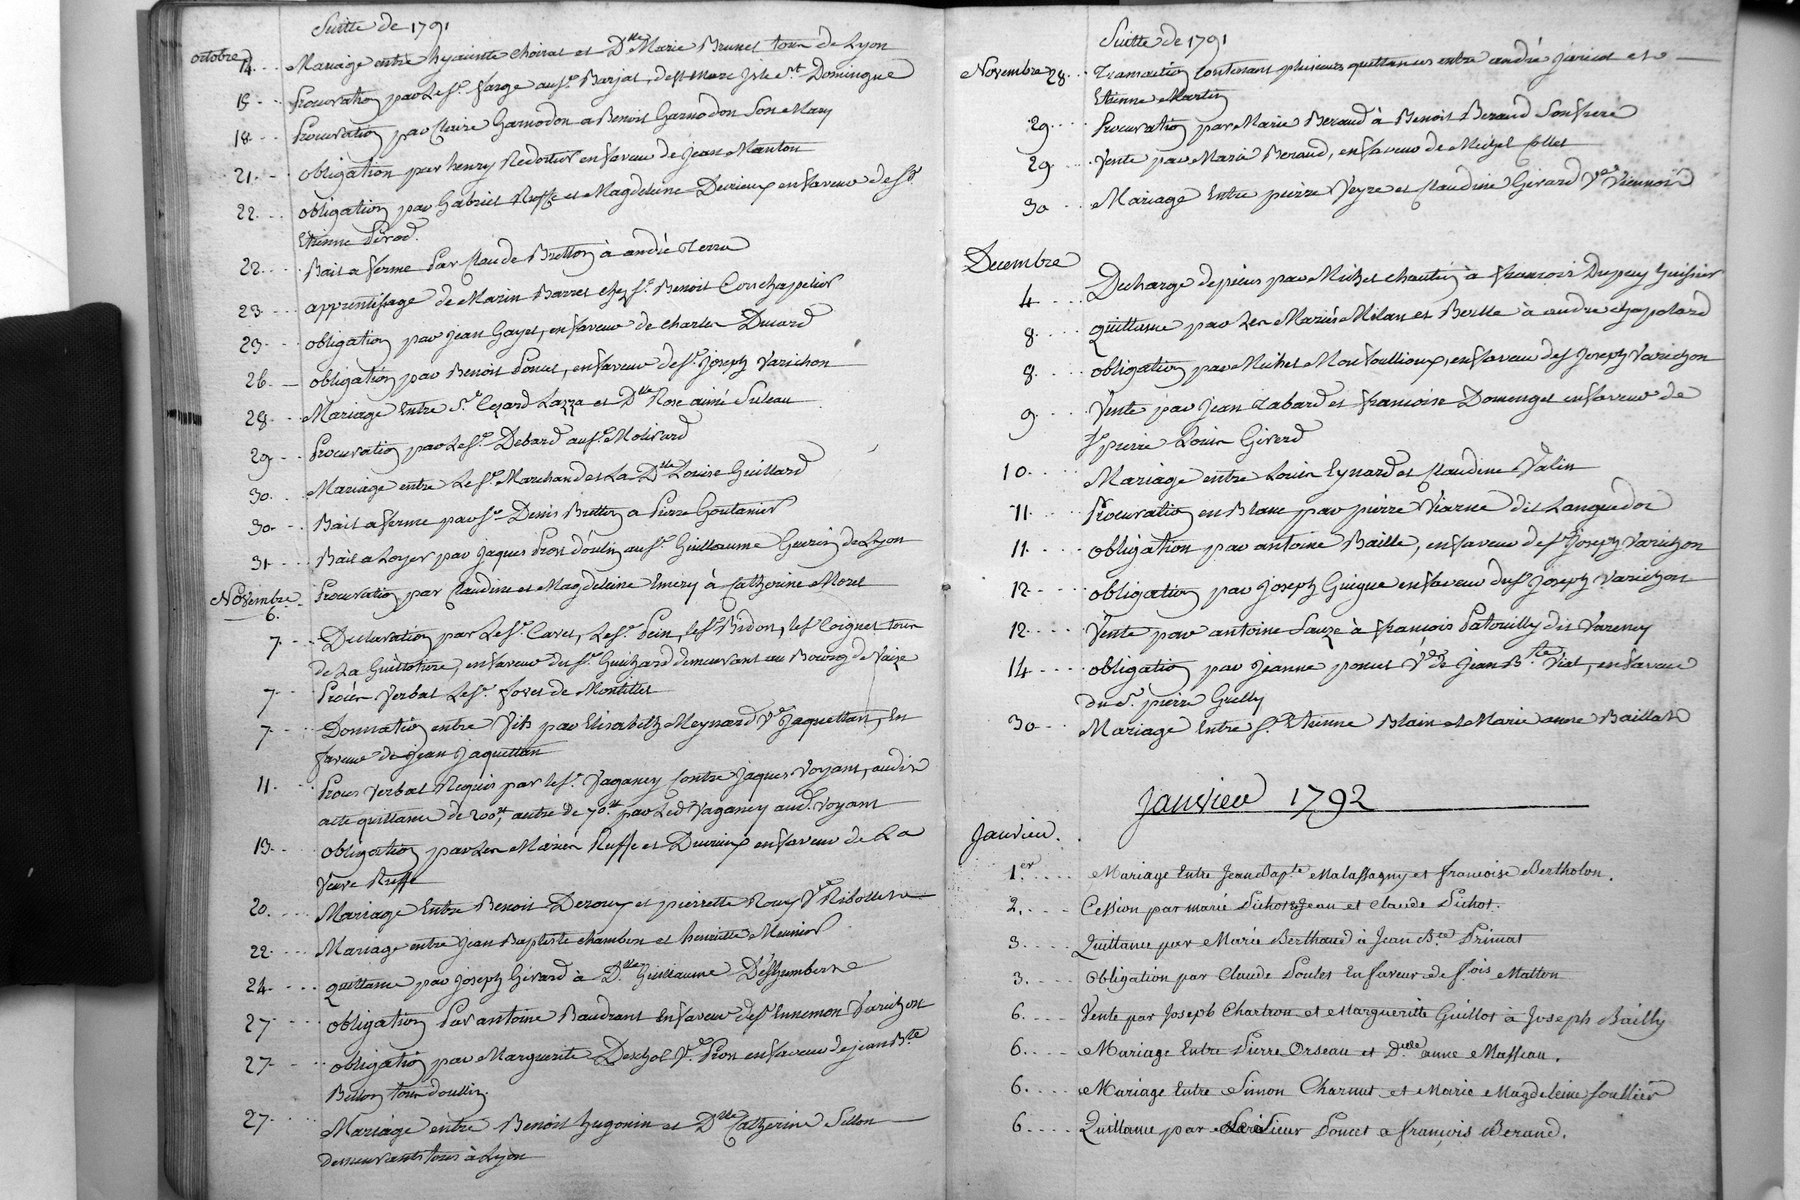 Suitte de 1791
octobre 14 Mariage entre hyacinte Choirat et Dlle Marie Brunet tous de Lyon
15 Procuration par Le Sr farge au Sr Barjat, dessendre Isle St Domingue
18 Procuration par Claire Garnodon a Benoit Garnodon Son Mary
21 obligation par henry Redortier en faveur de jean Manton
22 obligation par Gabriel Ruffe et Magdeleine Devrieux en faveur de Sr
Etienne Perod.
22 Bail a ferme Par Claude Bretton à andré Terra
23 apprentissage de Marin Barret chez Sr Benoit Chapelier
23 obligation par jean Gayet, en faveur de charles Ducard
26 obligation par Benoit Poncet, en faveur de Sr joseph Varichon
28 Mariage Entre Sr Cezard Lazza et Dlle Rose aimé Suleau
29 Procuration par Le Sr Debard au Sr Molirard
30 Mariage entre Le Sr Marchand et La Dlle Louise Guillard
30 Bail a ferme par Sr Denis Bretton a Pierre Goutanier
31 Bail a Loyer par jaques Pron d'oulin au Sr Guillaume Guerin de Lyon
Novembre 6 Procuration par Claudine et Magdeleine Emery à Catherine Moret
7 Declaration par Le Sr Caret, Le Sr Pein, le Sr Bidon, le Sr Coignet tous
de La Guillotiere, en faveur du Sr Guichard demeurant au Bourg de Vaize
7 Procès Verbal Le Sr foret de Montillet
7 Donnation entre Vifs par Elisabeth Meynard Ve Jaquettan, En
faveur de jean Jaquettan
11 Proces Verbal Requis par le Sr Vaganey Contre jaques Voyant, audit
acte quittance de 200tt, autre de 70tt par Led Vaganey aud. Voyant
13 obligation par Les Mariés Ruffe et Devrieux en faveur de La
Veuve Ruffe
20 Mariage Entre Benoit Deroux et pierrette Roux Ve Ribollet
22 Mariage entre jean Baptiste chambon et henriette Meunier
24 quittance par joseph Girard à Dlle Guillaume Deshumberne
27 obligation Par antoine Baudrant En faveur de Sr Ennemon Varichon
27 obligation par Marguerite Deschol Ve Pron en faveur de jean Bte
Billon tous doullin
27 Mariage entre Benoit hugonin et Dlle Catherine Sillon
demeurants tous à Lyon
Suitte de 1791
Novembre 28 Transaction Contenant plusieurs quittances entre andré Jaricot et
Etienne Martin
29 Procuration par Marie Beraud à Benoit Beraud Son frere
29 Vente par Marie Beraud, en faveur de Michel Collet
30 Mariage Entre pierre Veyre et Claudine Girard Ve Viennois
Decembre
4 Decharge de pièces par Michel chantin à francois Dupuy huissier
8 quittance par Les Mariés Milan et Berlle à andre chapolard
8 obligation par Michel Monfoullioux, en faveur de S Joseph Varichon
9 Vente par Jean Tabard et francoise Domenget en faveur de
Sr pierre Louis Girerd
10 Mariage entre Louis Eynard et Claudine Valin
11 Procuration en Blanc par pierre Viarne dit Languedoc
11 obligation par antoine Baille, en faveur de Sr Joseph Varichon
12 obligation par Joseph Guigue en faveur du Sr Joseph Varichon
12 Vente par antoine Lauze à francois Patouilly dit Varency
14 obligation par Jeanne poncet Ve de jean Bte Viat, en faveur
du Sr pierre Grelly
30 Mariage Entre Sr Etienne Blain et Marie anne Baillat
Janvier 1792
Janvier.
1er Mariage Entre Jean Bapte Malassagny et francoise Bertholon.
2. Cession par marie Pichot à Jean et Claude Pichot.
3 Quittance par Marie Berthaud à Jean Bte Primat
3. Obligation par Claude Poulet En faveur de fois Matton
6. Vente par Joseph Chartron et Margueritte Guillot à Joseph Bailly
6. Mariage Entre Pierre Orseau et Delle anne Masseau.
6. Mariage Entre Simon Charmet et Marie Magdeleine foullier
6 Quittance par Le Sieur Poncet a françois Beraud.